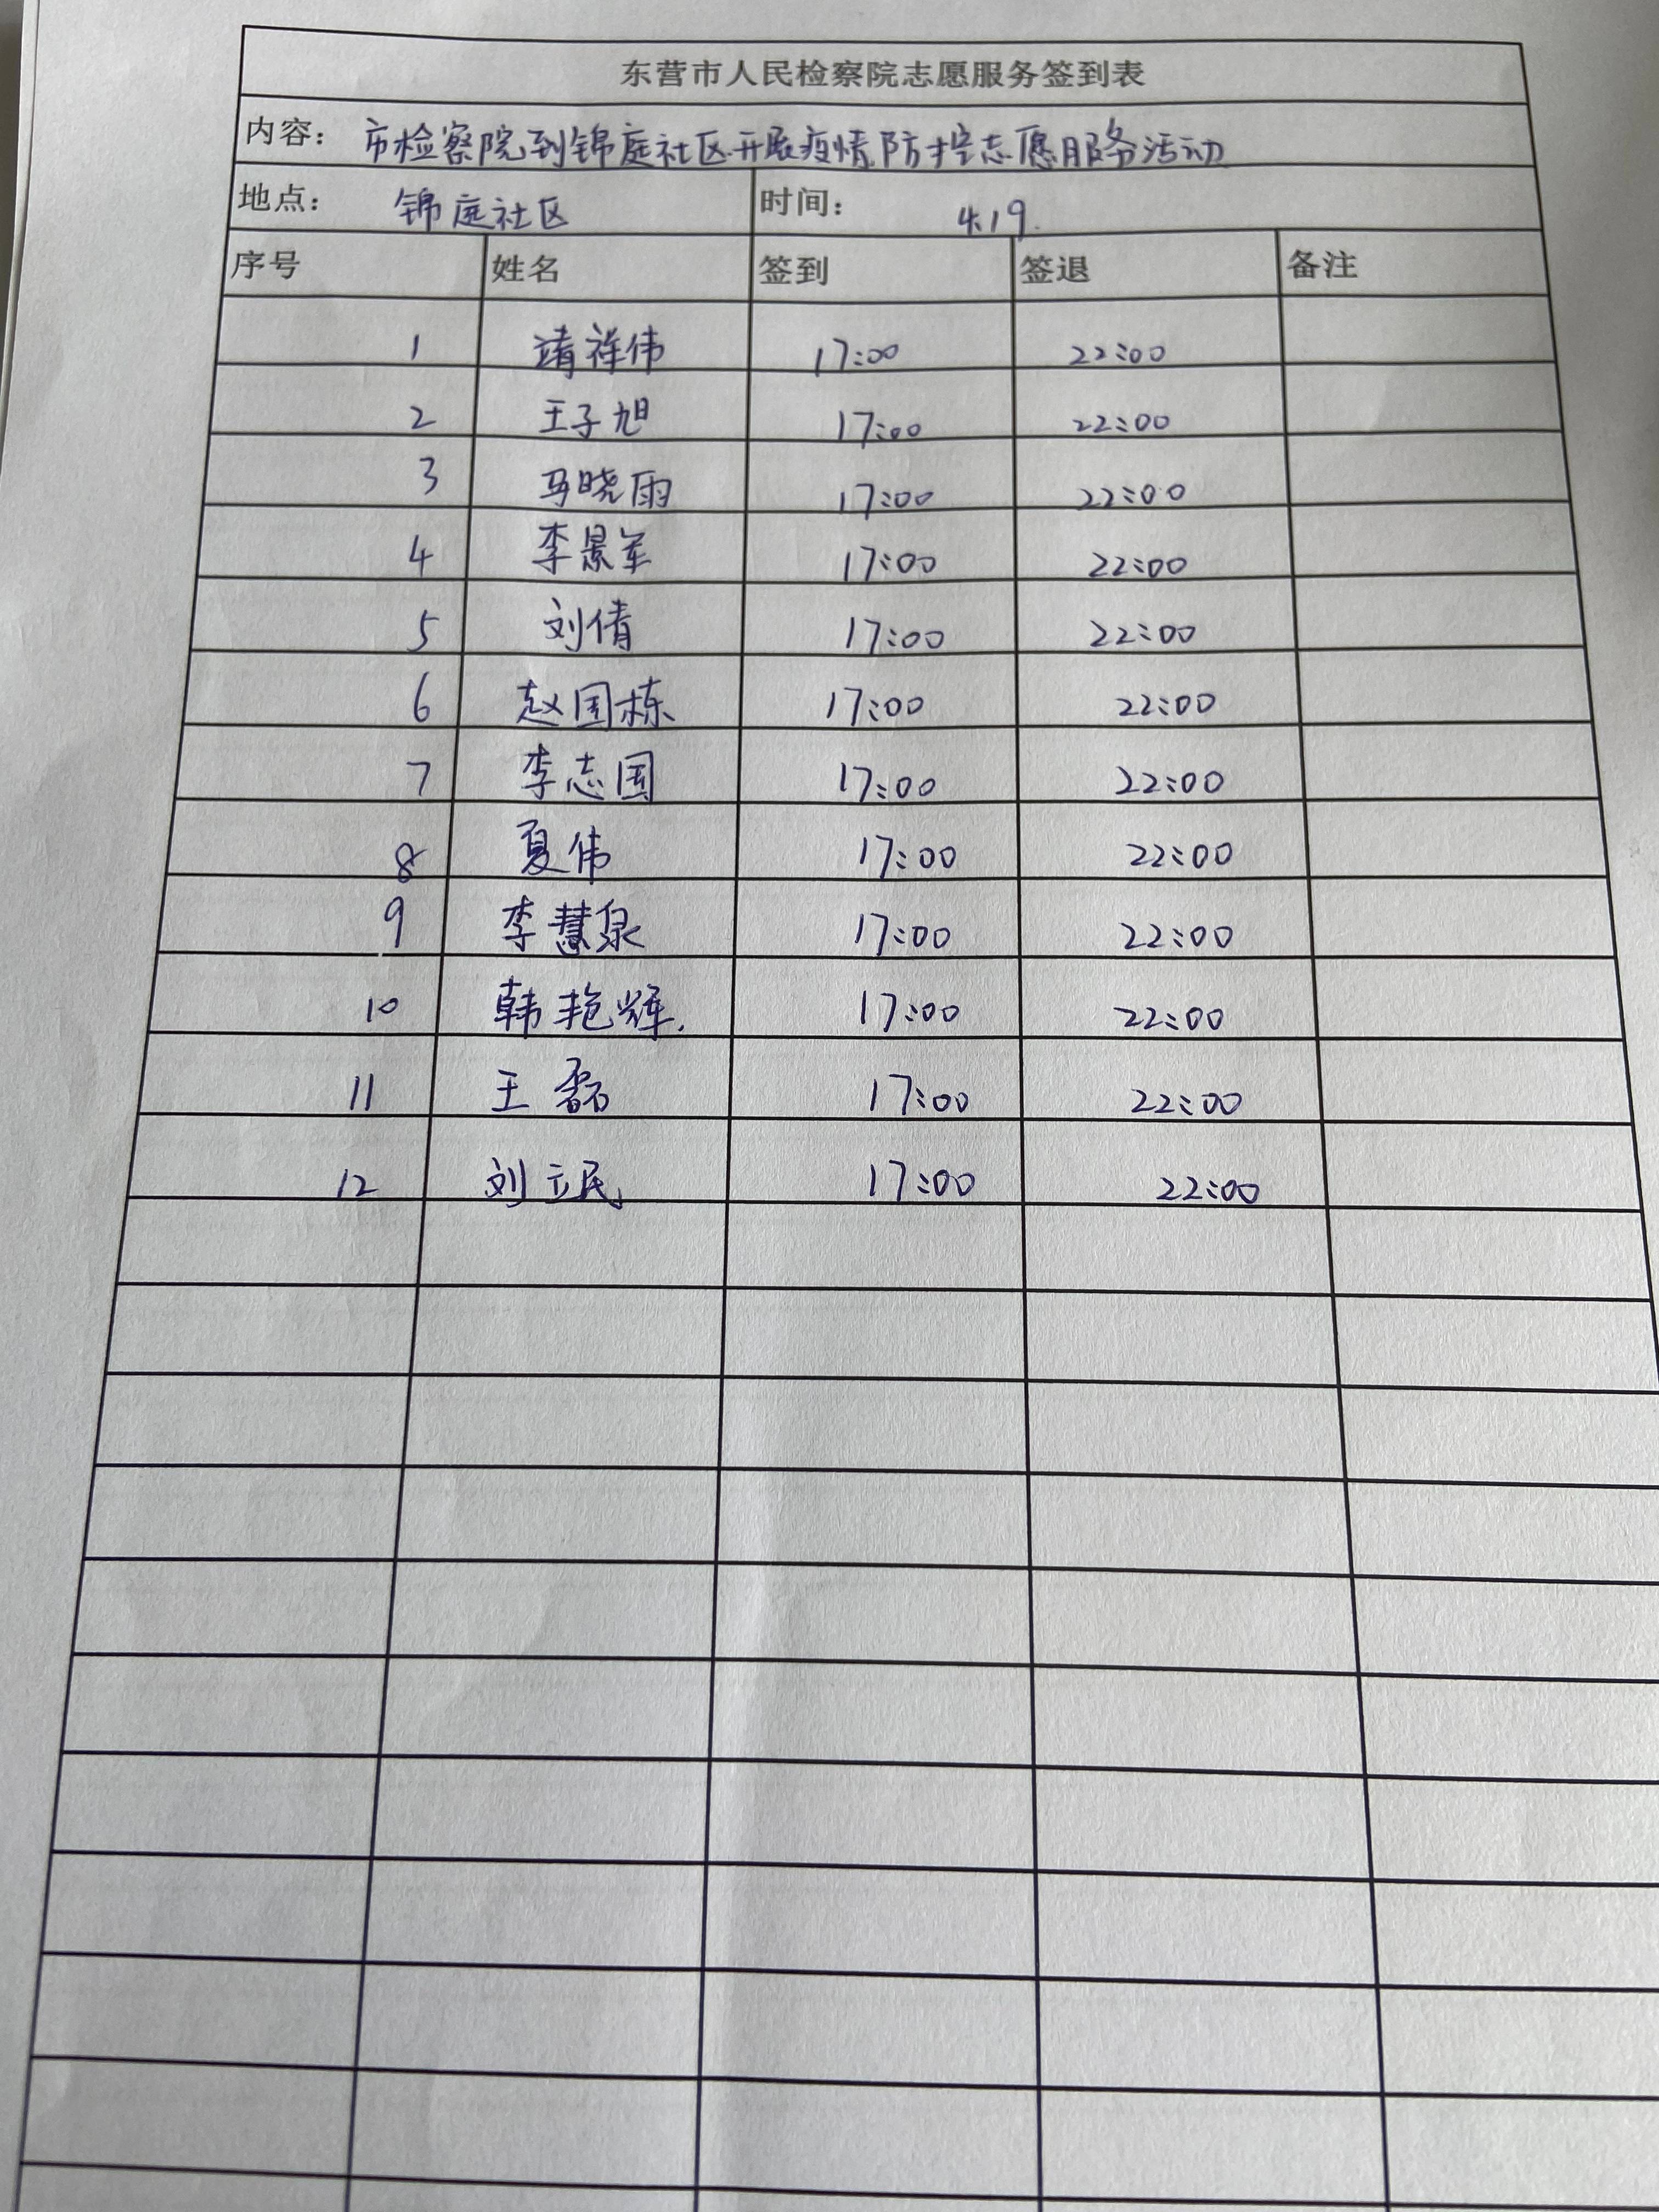 东营市人民检察院志愿服务签到表
内容： 市检察院到锦庭社区开展疫情防控志愿服务活动
地点： 锦庭社区 时间： 4.19.
序号 姓名 签到 签退 备注
1 靖祥伟 17:00 22:00
2 王子旭 17:00 22:00
3 马晓雨 17:00 22:00
4 李景军 17:00 22:00
5 刘倩 17:00 22:00
6 赵国栋 17:00 22:00
7 李志国 17:00 22:00
8 夏伟 17:00 22:00
9 李慧泉 17:00 22:00
10 韩艳辉. 17:00 22:00
11 王磊 17:00 22:00
12 刘立民 17:00 22:00